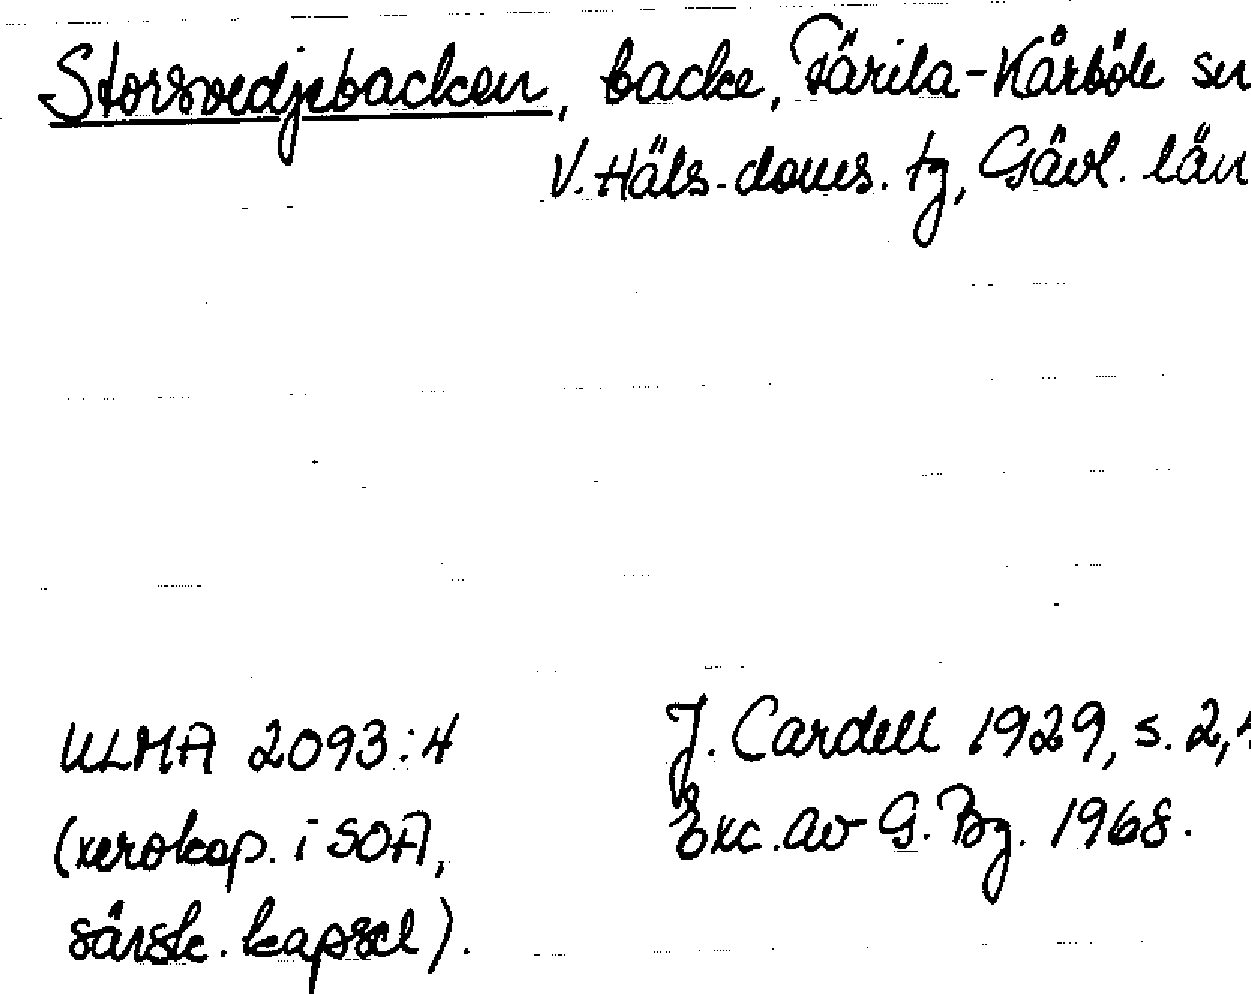 Storsvedjebacken, backe, Färila-Kårböle sn
V. Häls. doms. tg, Gävl. län
ULMA 2093:4 J. Cardell 1929, s. 2,
(xerokop. i SOA, Exc. av G. Bg. 1968.
särsk. kapsel).